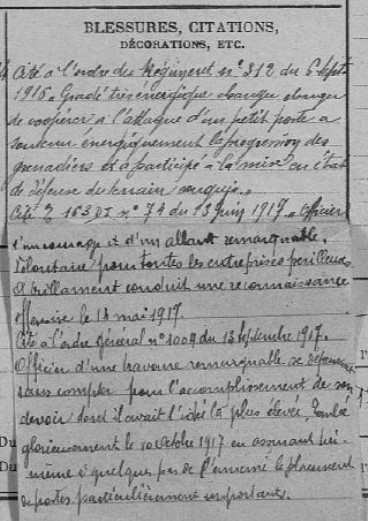 BLESSURES, CITATIONS,
DÉCORATIONS, ETC.
Cité à l'ordre du Régiment n° 312 du 6 Sept
1916. Gradé très énergique
de coopérer à l'attaque d'un petit poste a
soutenu énergiquement la progression des
grenadiers et a participé à la mise en état
de défense du terrain conquis.
Cité 163 DI n° 74 du 13 Juin 1917. Officier
d'un courage et d'un allant remarquable.
Volontaire pour toutes les entreprises périlleuses
A brillamment conduit une reconnaissance
offensive le 14 mai 1917.
Cité à l'ordre général n° 1009 du 13 Septembre 1917.
Officier d'une bravoure remarquable se dépensant
sans compter pour l'accomplissement de son
devoir dont il avait l'idée la plus élevée Tombé
Du glorieusement le 10 octobre 1917 en assurant lui-
Du même à quelques pas de l'ennemi le placement
de postes particulièrement importants.